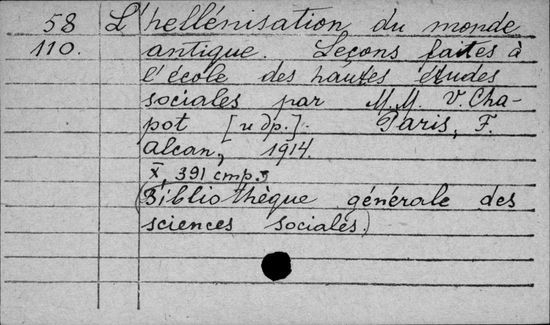 58 L'hellénisation du monde
110. antique. Leçons faites à
l'école des hautes études
sociales par M.M. V. Cha-
pot [и др.]. Paris, F.
Alcan, 1914.
X, 391 стр.,
(Bibliothèque générale des
sciences sociales.)